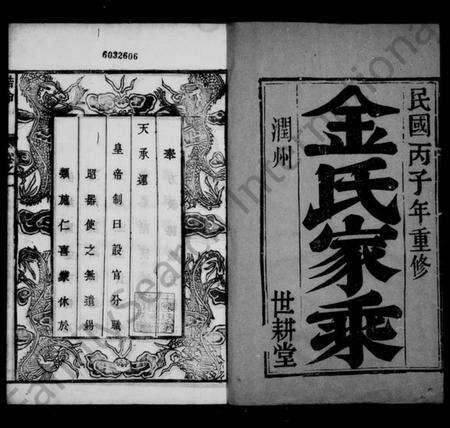 民國丙子年重修
金氏家乘
潤州
世耕堂
6032606
奉
天承運
皇帝制曰設官分職
昭器使之無遺錫
類施仁喜蒙休於
FamilySearch International